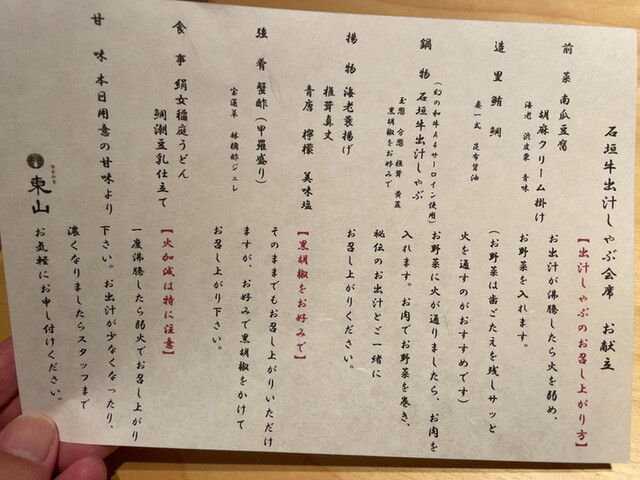 石垣牛出汁しゃぶ会席　お献立
前菜 南瓜豆腐
胡麻クリーム掛け
海老 渋皮栗 青味
造里 鮪 鯛
妻一式 昆布醤油
(幻の和牛A4サーロイン使用)
鍋物 石垣牛出汁しゃぶ
玉葱 分葱 椎茸 黄韮
黒胡椒をお好みで
揚物 海老蓑揚げ
椎茸真丈
青唐 檸檬 美味塩
強肴 蟹酢(甲羅盛り)
宝蓮草 林檎酢ジュレ
食事 絹女稲庭うどん
鯛潮豆乳仕立て
甘味 本日用意の甘味より
東山
【出汁しゃぶのお召し上がり方】
お出汁が沸騰したら火を弱め、
お野菜を入れます。
(お野菜は歯ごたえを残しサッと
火を通すのがおすすめです)
お野菜に火が通りましたら、お肉を
入れます。お肉でお野菜を巻き、
秘伝のお出汁とご一緒に
お召し上がりください。
【黒胡椒をお好みで】
そのままでもお召し上がりいただけ
ますが、お好みで黒胡椒をかけて
お召し上がり下さい。
【火加減は特に注意】
一度沸騰したら弱火でお召し上がり
下さい。お出汁が少なくなったり、
濃くなりましたらスタッフまで
お気軽にお申し付けください。